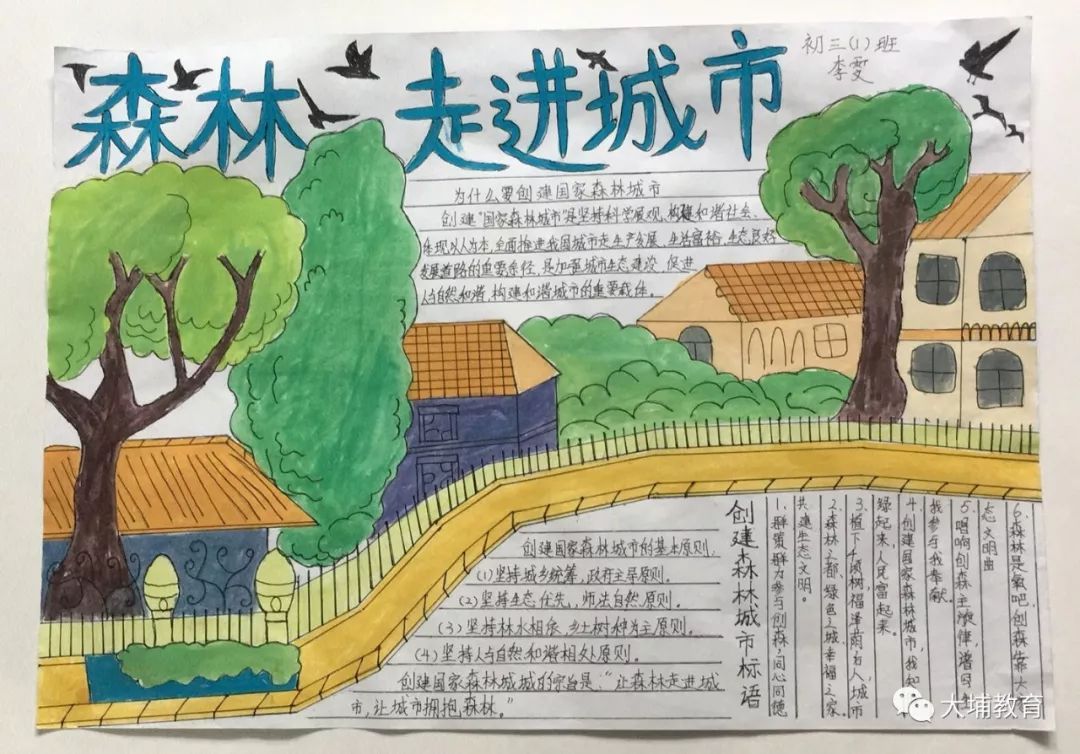 森林 走进城市
初三(1)班
李雯
为什么要创建国家森林城市
创建"国家森林城市"是坚持科学发展观、构建和谐社会、
体现以人为本,全面推进我国城市走生产发展、生活富裕、生态良好
发展道路的重要途径,是加强城市生态建设,促进
人与自然和谐,构建和谐城市的重要载体。
创建国家森林城市的基本原则.
(1)坚持城乡统筹,政府主导原则。
(2)坚持生态优先,师法自然原则。
(3)坚持林水相依,乡土树种为主原则。
(4)坚持人与自然和谐相处原则。
创建国家森林城城的宗旨是:"让森林走进城
市,让城市拥抱森林。"
创建森林城市标语
1.群策群力参与创森,同心同德
共建生态文明。
2.森林之都,绿色之城,幸福之家.
3.植下4项树,福泽荫万人,城市
绿起来,人民富起来。
4.创建国家森林城市,我知
我参与我奉献.
5.唱响创森主旋律,谱写生
态文明曲
6.森林是氧吧,创森靠大
大埔教育